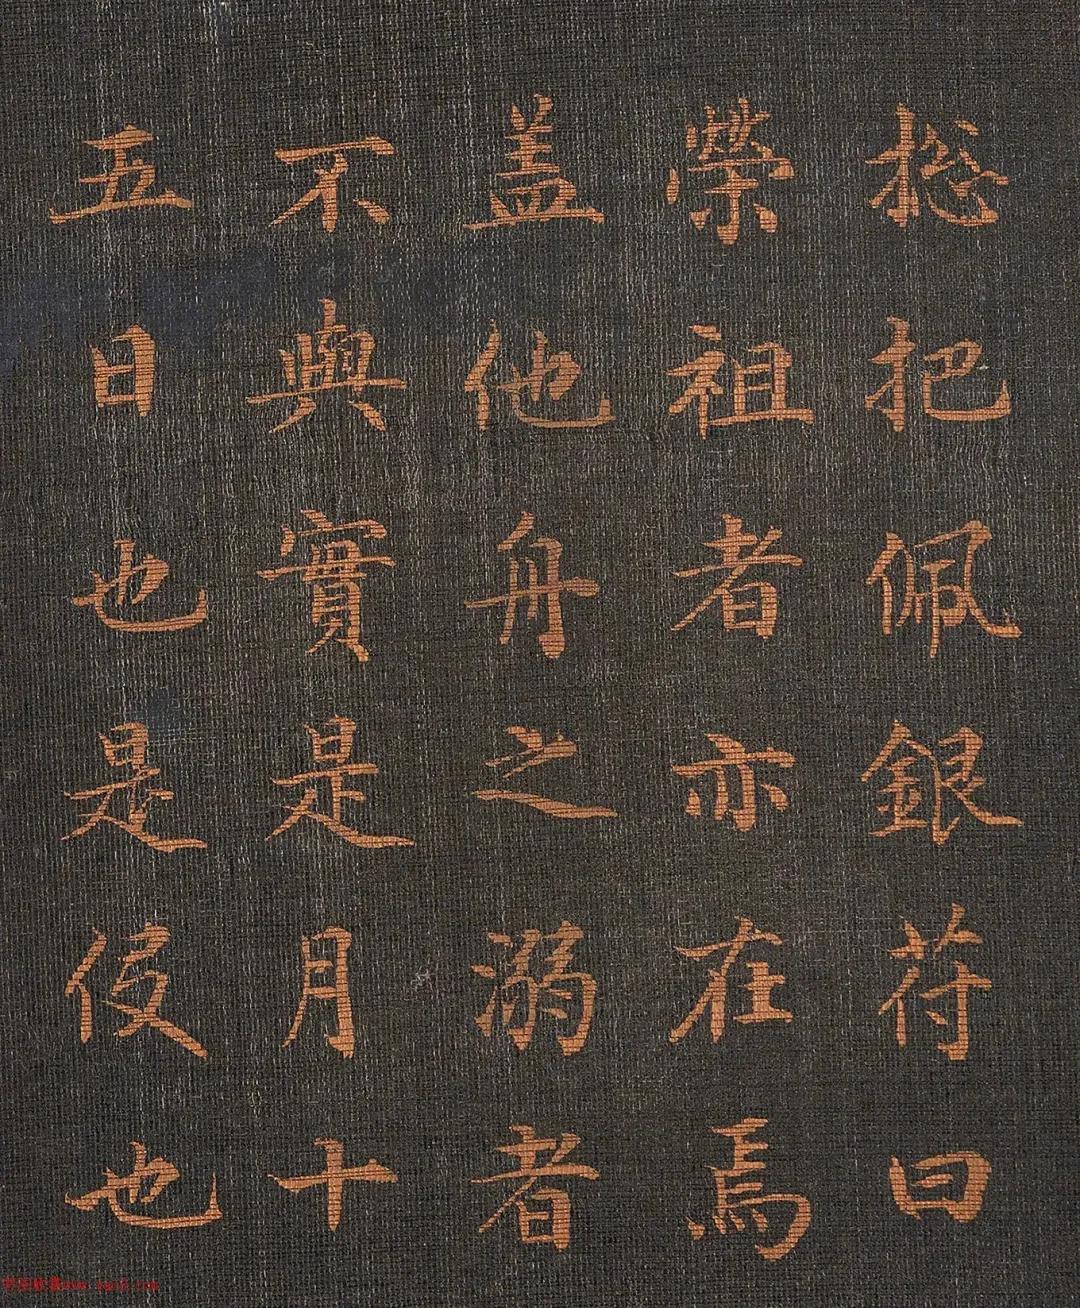 捴把佩銀苻曰
榮祖者亦在焉
盖他舟之溺者
不與實是月十
五日也是役也